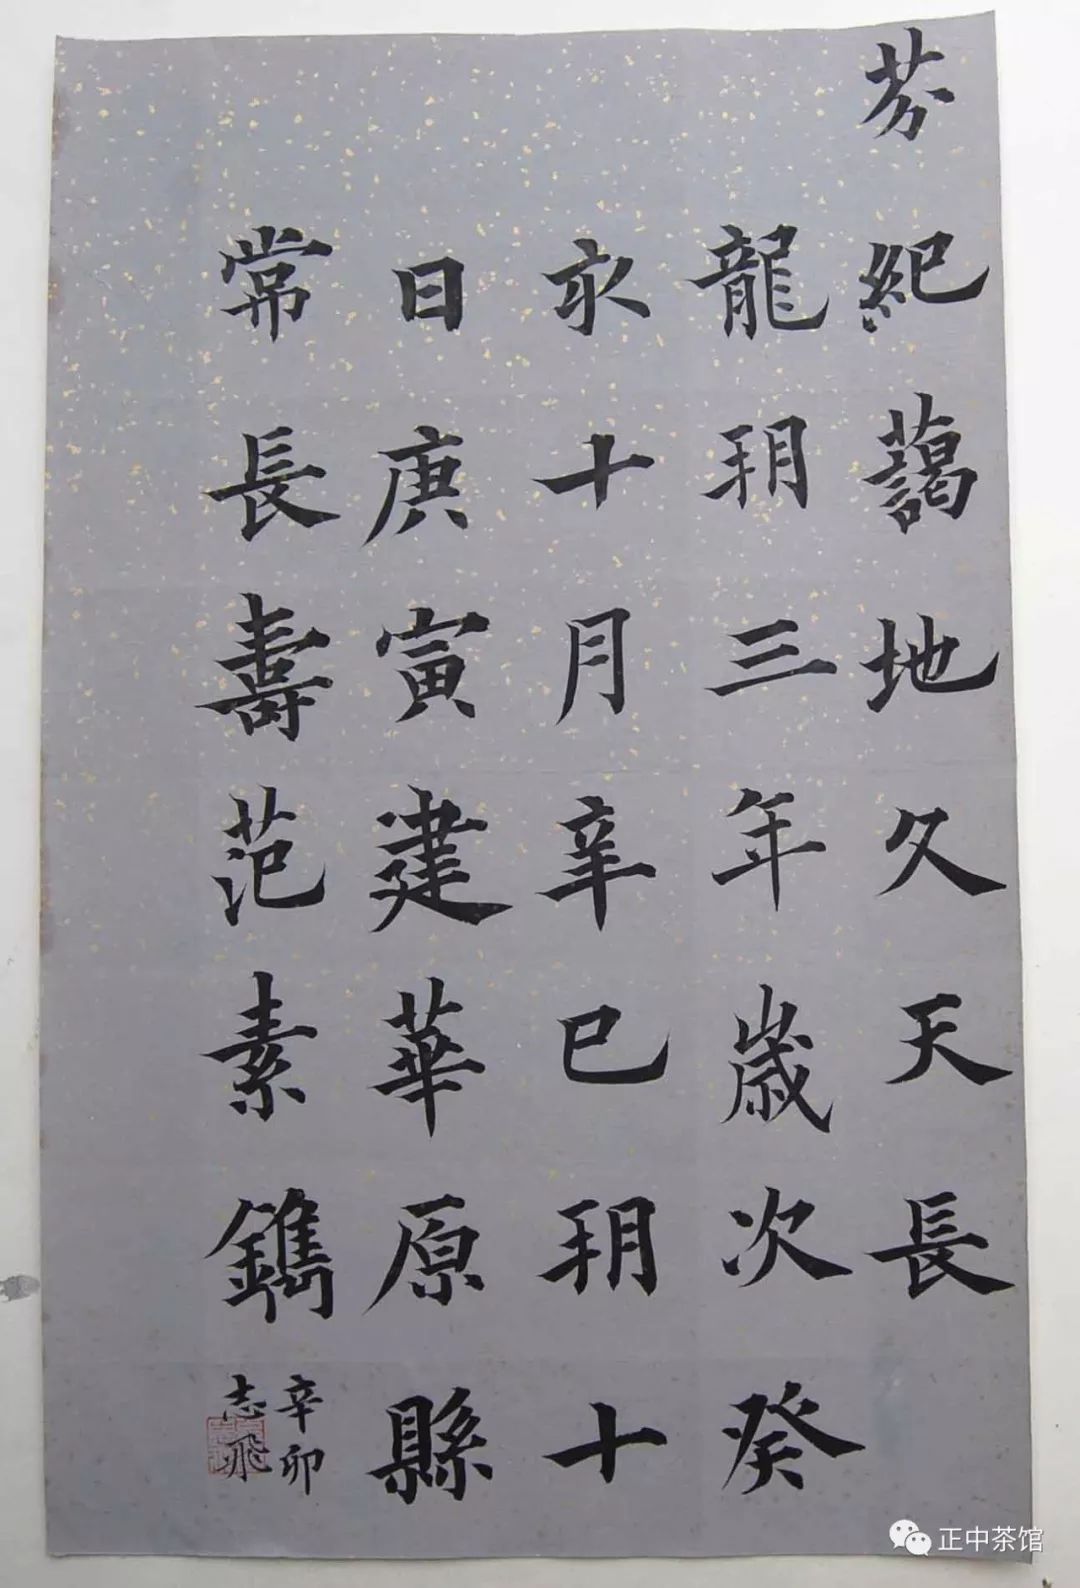 芬紀藹地久天長
龍玥三年歲次癸
亥十月辛巳玥十
日庚寅建華原縣
常長壽范素鐫
辛卯
志飛
正中茶馆